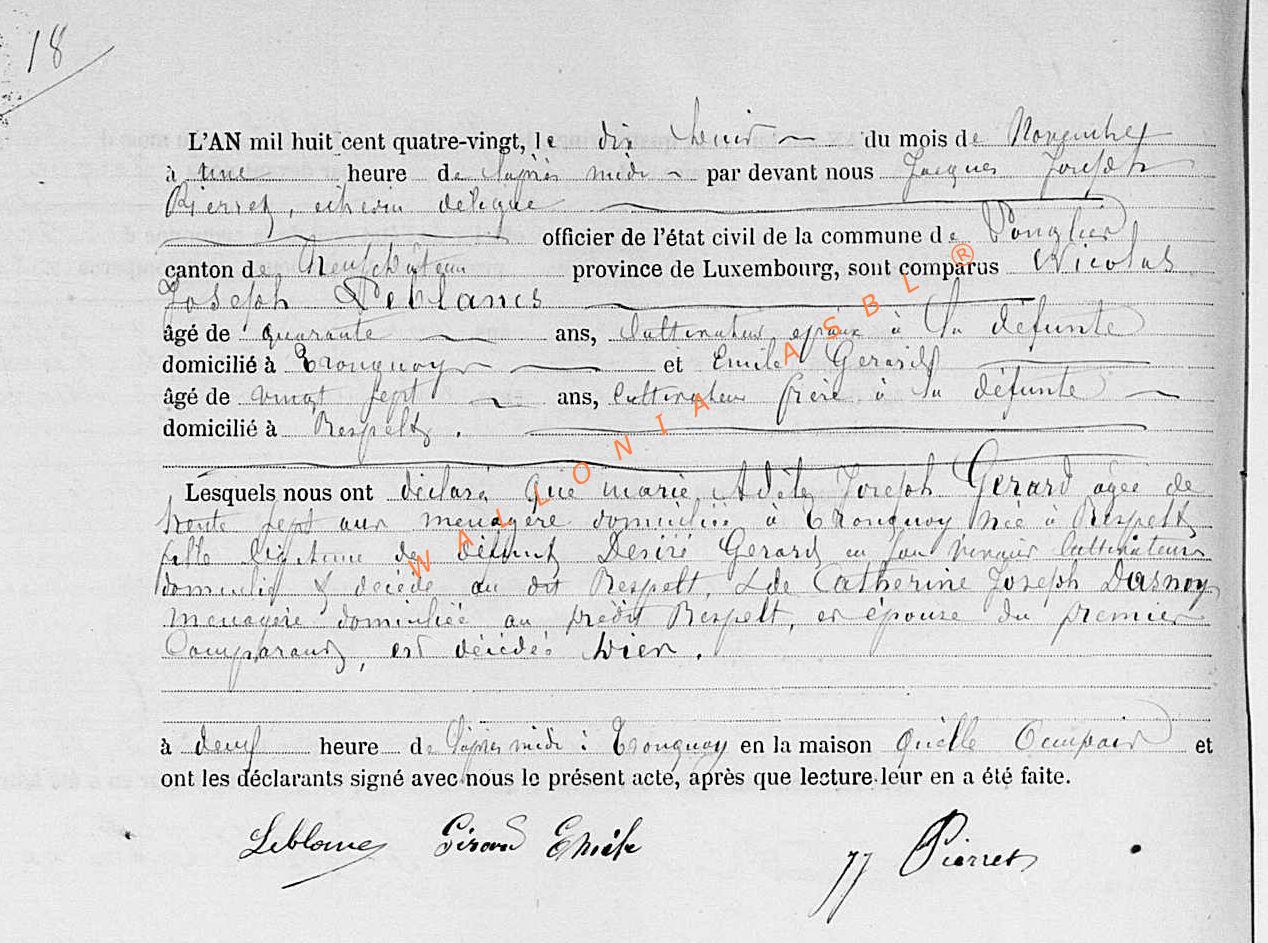 18
L'AN mil huit cent quatre-vingt, le dix huit du mois de Novembre
à une heure de l'après midi par devant nous Jacques Joseph
Pierret, échevin délégué
officier de l'état civil de la commune de Longlier
canton de Neufchâteau province de Luxembourg, sont comparus Nicolas
Joseph Leblancs
âgé de quarante ans, Cultivateur époux à la défunte
domicilié à Tronquoy et Emile Gerard
âgé de vingt sept ans, Cultivateur frère à la défunte
domicilié à Respelt.
Lesquels nous ont déclaré que marie Adèle Joseph Gerard agée de
trente sept ans menagère domiciliée à Tronquoy née à Respelt
fille légitime de défunt Desiré Gerard en son vivant Cultivateur
domicilié & décédé au dit Respelt, & de Catherine Joseph Dasnoy
menagère domiciliée au prédit Respelt, et épouse du premier
Comparant, est décédée hier.
à deux heure de l'après midi à Tronquoy en la maison qu'elle Occupait et
ont les déclarants signé avec nous le présent acte, après que lecture leur en a été faite.
Leblanc Gérard Emile JJ Pierret
WALLONIA ASBL ®